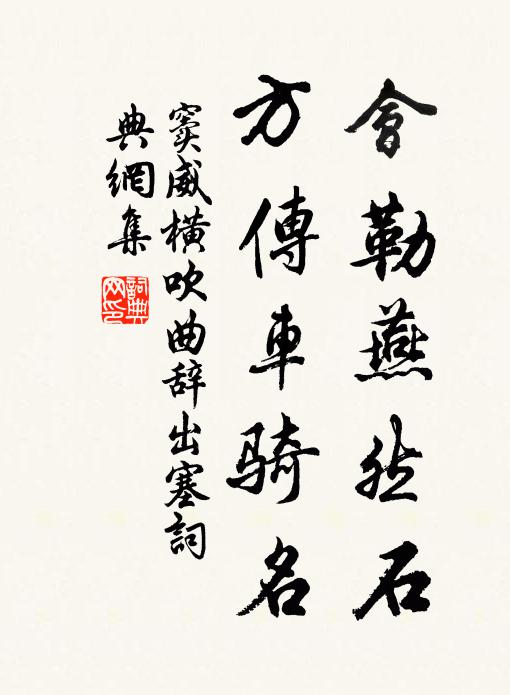 會勒燕然石
方傳車騎名
竇威橫吹曲辞出塞詞
典網集
詞典
网印